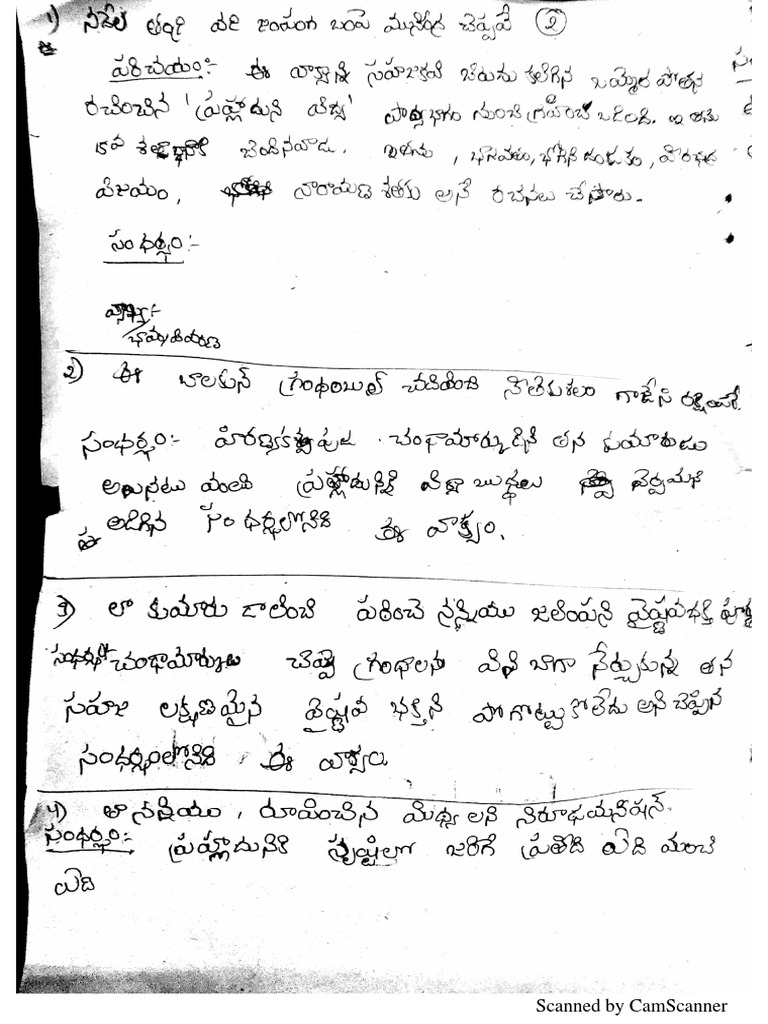 1) నడేల తండ్రి వరి జంపంగ బంపె మునీంద్ర చెప్పవే ②
పరిచయం:- ఈ వాక్యాన్ని సహజకవి బిరుదు కలిగిన బమ్మెర పోతన
రచించిన 'ప్రహ్లాదుని విద్య' పాఠ్యభాగం నుంచి గ్రహించ బడింది. ఇతను
15వ శతాబ్దానికి చెందినవాడు. ఇతను, భాగవతం, భోగినీ దండకం, వీరభద్ర
విజయం, నారాయణ శతకం అనే రచనలు చేసారు.
సంధర్భం:-
వ్యాఖ్య:-
2) ఈ బాలకున్ గ్రంథంబుల్ చదివించి నీతికుశలం గాజేసి రక్షింపవే.
సంధర్భం:- హిరణ్యకశ్యపుడు చండామార్కుడిని తన కుమారుడు
అయినటు వంటి ప్రహ్లాదున్నికి విద్యా బుద్ధులు నేర్పమని
అడిగిన సంధర్భంలోనిది ఈ వాక్యం.
3) ఆ కుమారు డాలించి పఠించె నన్నియు జలింపని వైష్ణవభక్తి పూర్ణ
సంధర్భం చండామార్కులు చెప్పె గ్రంథాలను విని బాగా నేర్చుకున్న తన
సహజ లక్షణమైన వైష్ణవ భక్తిని పోగొట్టుకోలేదు అని చెప్పిన
సంధర్భంలోనిది ఈ వాక్యం
4) ఆ నన్నియు, రూపించిన మిథ్యలని నిరూఢమనీషన్.
సంధర్భం:- ప్రహ్లాదునికి సృష్టిలో జరిగే ప్రతిది ఏది మంచి
ఏది
Scanned by CamScanner